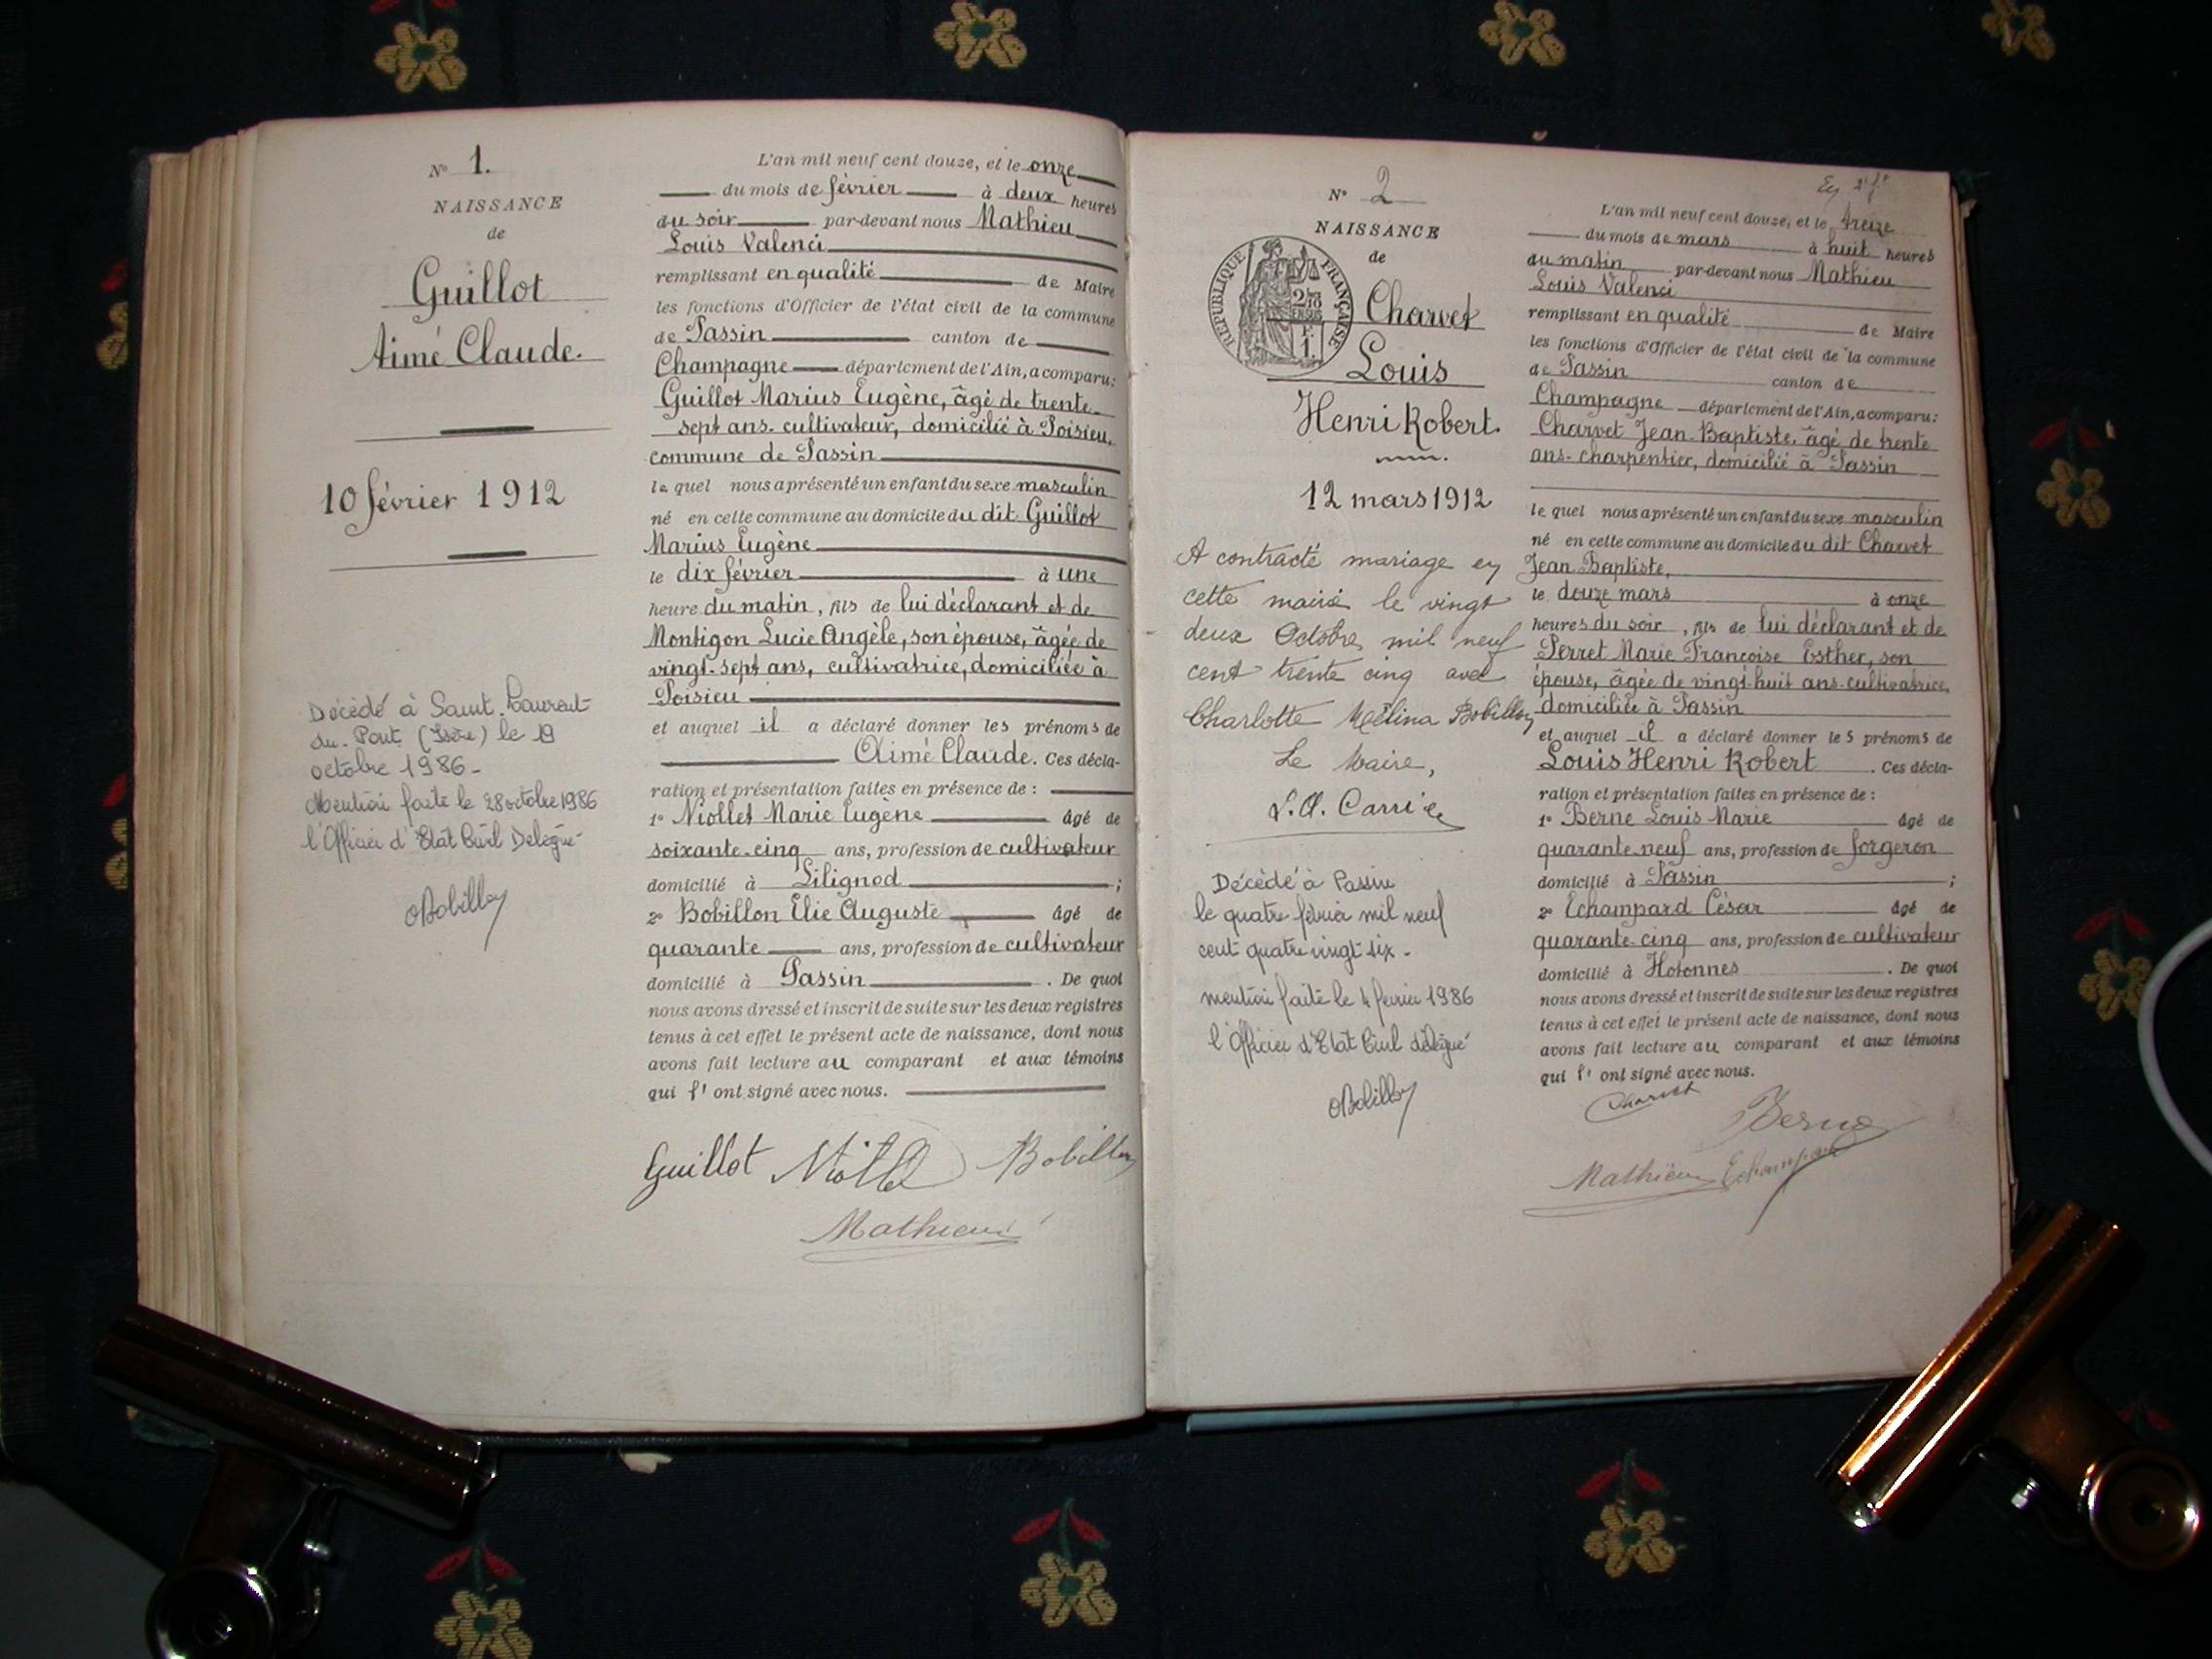 N° 1.
NAISSANCE
de
Guillot
Aimé Claude.
10 février 1912
Décédé à Saint-Laurent-
du-Pont (Isère) le 19
octobre 1986-
Mention faite le 28 octobre 1986
l'Officier d'Etat Civil Délégué
OBobillon
L'an mil neuf cent douze, et le onze
du mois de février à deux heures
du soir par-devant nous Mathieu
Louis Valenci
remplissant en qualité de Maire
les fonctions d'Officier de l'état civil de la commune
de Passin canton de
Champagne département de l'Ain, a comparu:
Guillot Marius Eugène, âgé de trente-
sept ans. cultivateur, domicilié à Poisieu,
commune de Passin
lequel nous a présenté un enfant du sexe masculin
né en cette commune au domicile du dit Guillot
Marius Eugène
le dix février à une
heure du matin, fils de lui déclarant et de
Montigon Lucie Angèle, son épouse, âgée de
vingt-sept ans, cultivatrice, domiciliée à
Poisieu
et auquel il a déclaré donner les prénoms de
Aimé Claude. Ces décla-
ration et présentation faites en présence de :
1° Niollet Marie Eugène âgé de
soixante-cinq ans, profession de cultivateur
domicilié à Lilignod ;
2° Bobillon Elie Auguste âgé de
quarante ans, profession de cultivateur
domicilié à Passin . De quoi
nous avons dressé et inscrit de suite sur les deux registres
tenus à cet effet le présent acte de naissance, dont nous
avons fait lecture au comparant et aux témoins
qui l'ont signé avec nous.
Guillot Niollet Bobillon
Mathieu
N° 2
NAISSANCE
de
RÉPUBLIQUE FRANÇAISE
Charvet
Louis
Henri Robert.
12 mars 1912
A contracté mariage en
cette mairie le vingt
deux Octobre mil neuf
cent trente cinq avec
Charlotte Mélina Bobillon
Le Maire,
Décédé à Passin
le quatre février mil neuf
cent quatre vingt six -
mention faite le 4 février 1986
l'Officier d'Etat Civil délégué
OBobillon
L'an mil neuf cent douze, et le treize
du mois de mars à huit heures
du matin par-devant nous Mathieu
Louis Valenci
remplissant en qualité de Maire
les fonctions d'Officier de l'état civil de la commune
de Passin canton de
Champagne département de l'Ain, a comparu:
Charvet Jean-Baptiste, âgé de trente
ans- charpentier, domicilié à Passin
lequel nous a présenté un enfant du sexe masculin
né en cette commune au domicile du dit Charvet
Jean Baptiste,
le douze mars à onze
heures du soir, fils de lui déclarant et de
Perret Marie Françoise Esther, son
épouse, âgée de vingt-huit ans-cultivatrice,
domiciliée à Passin
et auquel il a déclaré donner les prénoms de
Louis Henri Robert . Ces décla-
ration et présentation faites en présence de :
1° Berne Louis Marie âgé de
quarante-neuf ans, profession de forgeron
domicilié à Passin ;
2° Echampard César âgé de
quarante-cinq ans, profession de cultivateur
domicilié à Hotonnes . De quoi
nous avons dressé et inscrit de suite sur les deux registres
tenus à cet effet le présent acte de naissance, dont nous
avons fait lecture au comparant et aux témoins
qui l'ont signé avec nous.
Charvet Berne
Mathieu Echampard